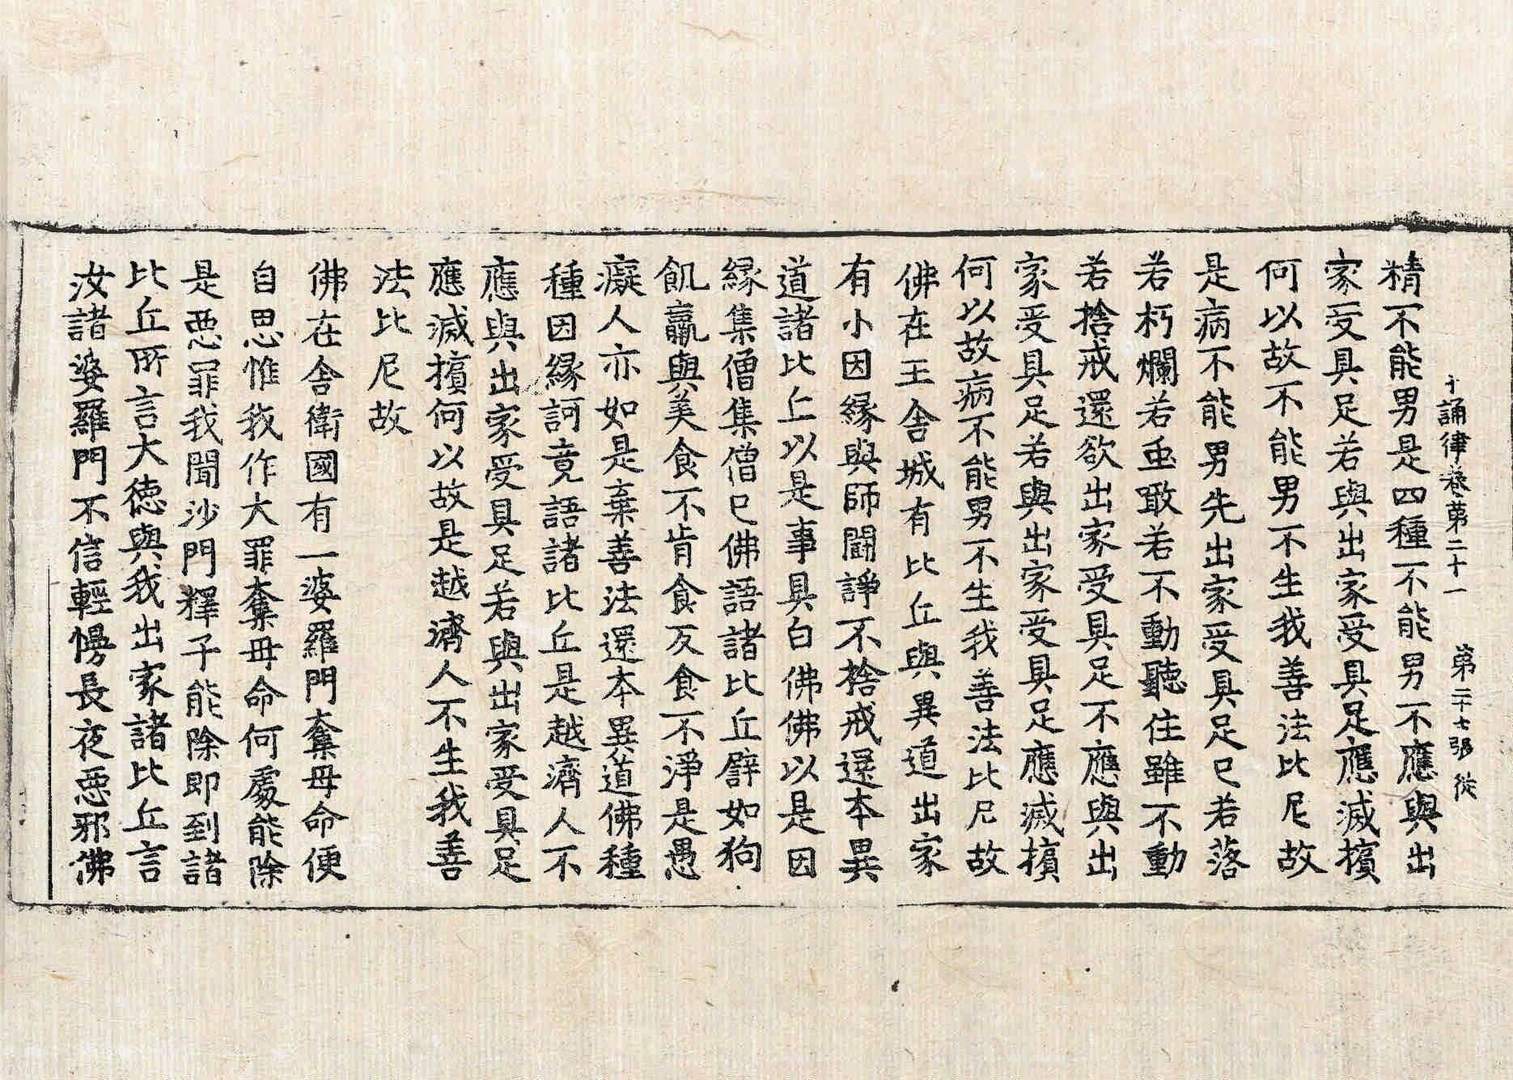 十誦律卷第二十一 第二十七張 從
精不能男是四種不能男不應與出
家受具足若與出家受具足應滅擯
何以故不能男不生我善法比尼故
是病不能男先出家受具足已若落
若朽爛若虫噉若不動聽住雖不動
若捨戒還欲出家受具足不應與出
家受具足若與出家受具足應滅擯
何以故病不能男不生我善法比尼故
佛在王舍城有比丘與異道出家
有小因縁與師鬪諍不捨戒還本異
道諸比丘以是事具白佛佛以是因
縁集僧集僧已佛語諸比丘譬如狗
飢羸與美食不肯食反食不淨是愚
癡人亦如是棄善法還本異道佛種
種因縁訶竟語諸比丘是越濟人不
應與出家受具足若與出家受具足
應滅擯何以故是越濟人不生我善
法比尼故
佛在舍衛國有一婆羅門奪母命便
自思惟我作大罪奪母命何處能除
是惡罪我聞沙門釋子能除即到諸
比丘所言大德與我出家諸比丘言
汝諸婆羅門不信輕慢長夜惡邪佛